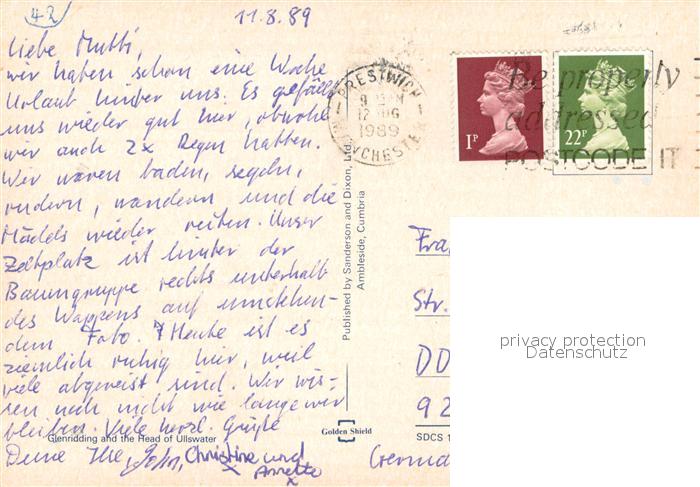 42
11.8.89
Liebe Mutti,
wir haben schon eine Woche
Urlaub hinter uns. Es gefällt
uns wieder gut hier, obwohl
wir auch 2x Regen hatten.
Wir waren baden, segeln,
rudern, wandern und die
Mädels wieder reiten. Unser
Zeltplatz ist hinter der
Baumgruppe rechts unterhalb
des Wappens auf umstehen-
dem Foto. Heute ist es
ziemlich ruhig hier, weil
viele abgereist sind. Wir wis-
sen noch nicht wie lange wir
bleiben. Viele herzl. Grüße
Deine Ilse, John, Christine und
Annette
Glenridding and the Head of Ullswater
Published by Sanderson and Dixon, Ltd.,
Ambleside, Cumbria
Golden Shield
SDCS 1
PRESTWICH
12 AUG
1989
MANCHESTER
1P
22P
Be properly
addressed
POSTCODE IT
Fra
Str.
DD
92
Germa
privacy protection
Datenschutz